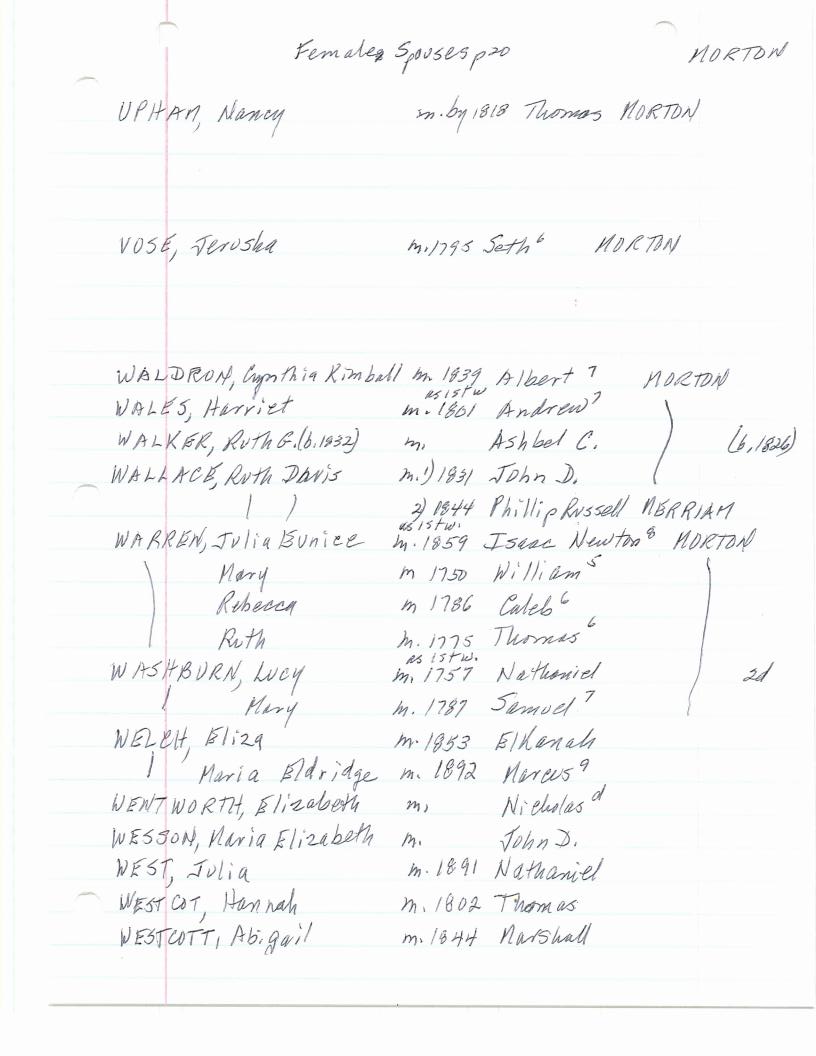 Female Spouses p20 MORTON
UPHAM, Nancy m. by 1818 Thomas MORTON
VOSE, Jerusha m. 1795 Seth⁶ MORTON
WALDRON, Cynthia Kimball m. 1839 Albert⁷ MORTON
as 1st w
WALES, Harriet m. 1801 Andrew⁷
WALKER, Ruth G. (b. 1832) m. Ashbel C. (b. 1826)
WALLACE, Ruth Davis m. 1) 1831 John D.
2) 1844 Phillip Russell MERRIAM
as 1st w.
WARREN, Julia Eunice m. 1859 Isaac Newton⁸ MORTON
Mary m 1750 William⁵
Rebecca m 1786 Caleb⁶
Ruth m. 1775 Thomas⁶
as 1st w.
WASHBURN, Lucy m. 1757 Nathaniel 2d
Mary m. 1787 Samuel⁷
WELCH, Eliza m. 1853 Elkanah
Maria Eldridge m. 1892 Marcus⁹
WENTWORTH, Elizabeth m. Nicholas
WESSON, Maria Elizabeth m. John D.
WEST, Julia m. 1891 Nathaniel
WESTCOT, Hannah m. 1802 Thomas
WESTCOTT, Abigail m. 1844 Marshall